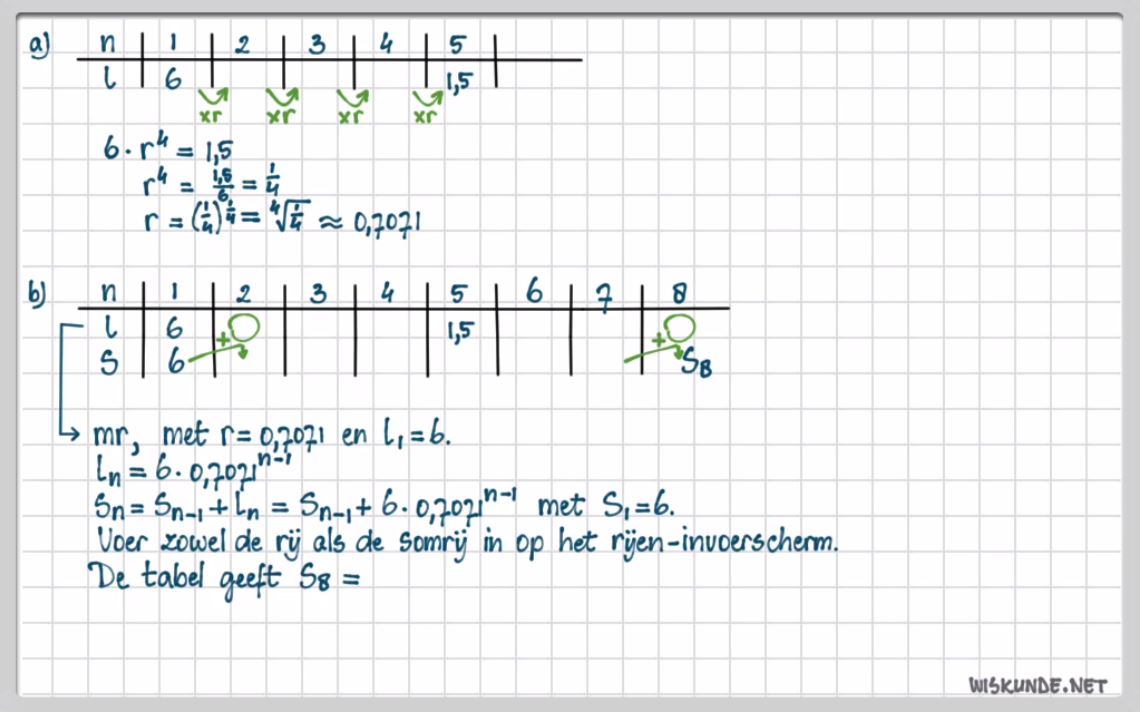 a) n | 1 | 2 | 3 | 4 | 5 |
l | 6 | | | | 1,5 |
xr xr xr xr
6 · r⁴ = 1,5
r⁴ = 1,5/6 = 1/4
r = (1/4)^(1/4) = ⁴√(1/4) ≈ 0,7071
b) n | 1 | 2 | 3 | 4 | 5 | 6 | 7 | 8
l | 6 | + | | | 1,5 | | | +
S | 6 | | | | | | | S₈
mr, met r = 0,7071 en l₁ = 6.
lₙ = 6 · 0,7071ⁿ⁻¹
Sₙ = Sₙ₋₁ + lₙ = Sₙ₋₁ + 6 · 0,7071ⁿ⁻¹ met S₁ = 6.
Voer zowel de rij als de somrij in op het rijen-invoerscherm.
De tabel geeft S₈ =
WISKUNDE.NET